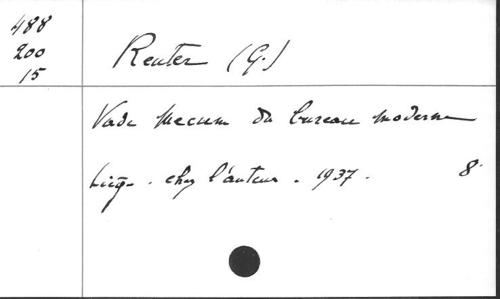 488
200
15
Reuter (G.)
Vade Mecum du bureau moderne
Liég. chez l'auteur. 1937. 8°